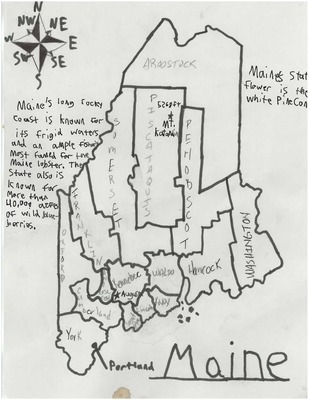 N
NW
NE
W
E
SW
SE
S
AROOSTOOK
Maine's long rocky
coast is known for
its frigid waters,
and an ample
most famed for the
Maine lobster. The
State also is
known for
more than
40,000 acres
of wild blue-
berries.
Maine's Stat
flower is the
white PineCon
SOMERSET
PISCATAQUIS
5268ft.
Mt.
Katahdin
PENOBSCOT
FRANKLIN
OXFORD
WASHINGTON
Hancock
Waldo
Kennebec
Augusta
Knox
York
Portland
Maine